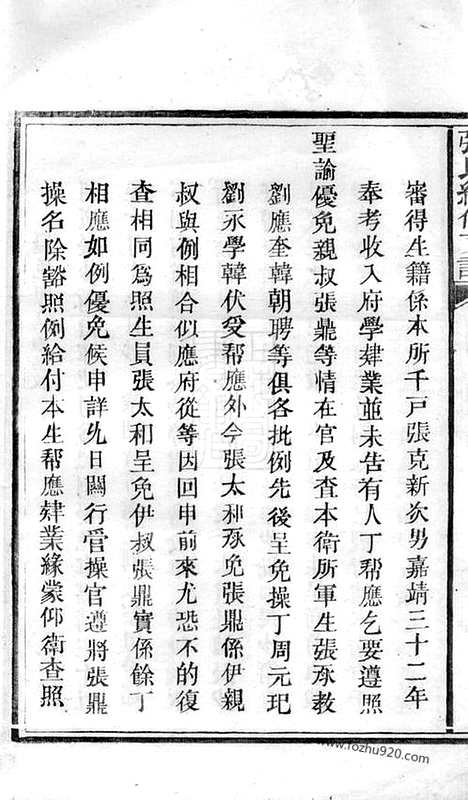 審得生籍係本所千戸張克新次男嘉靖三十二年
奉考收入府學肄業並未告有人丁帮應乞要遵照
聖諭優免親叔張鼎等情在官及査本衛所軍生張承教
劉應奎韓朝聘等俱各批例先後呈免操丁周元玘
劉永學韓伏受帮應外今張太和承免張鼎係伊親
叔與例相合似應府從等因回申前來尤恐不的復
查相同爲照生員張太和呈免伊叔張鼎實係餘丁
相應如例優免候申詳允日關行管操官遵將張鼎
操名除豁照例給付本生帮應肄業緣蒙仰衛查照
www.rozhu920.com